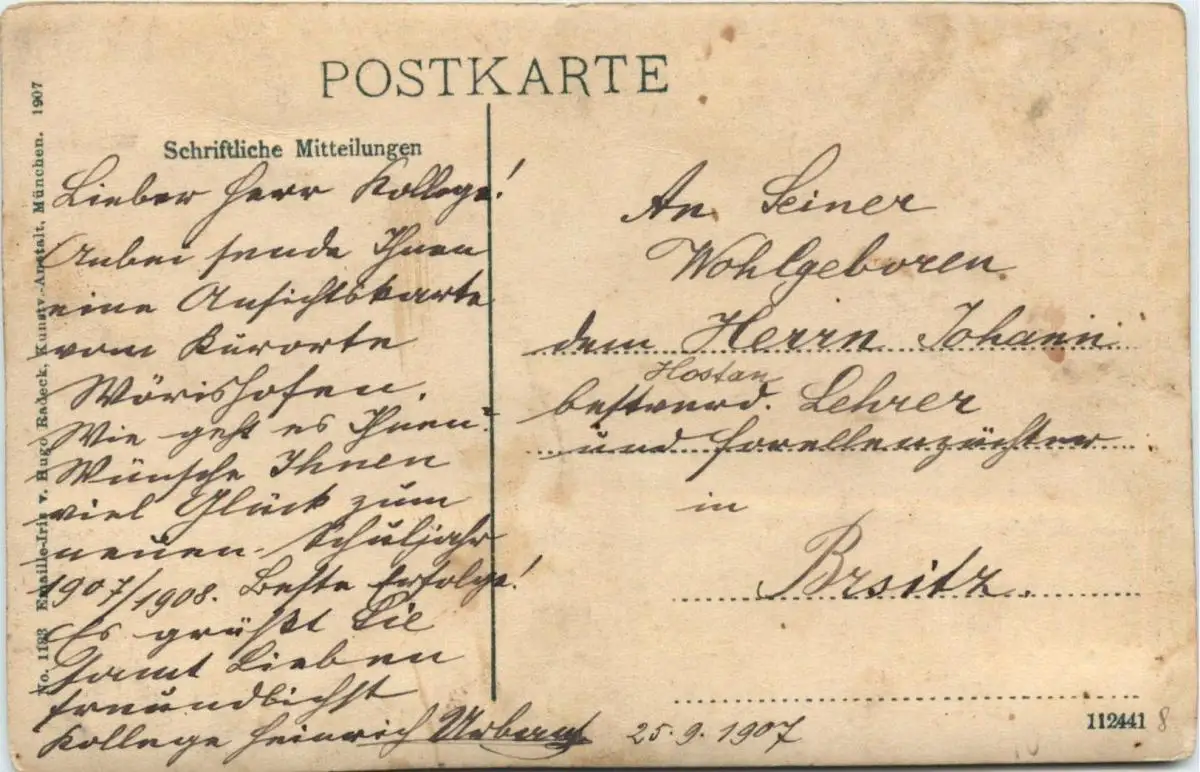 POSTKARTE
Schriftliche Mitteilungen
Lieber Herr Kollege!
Anbei sende Ihnen
eine Ansichtskarte
vom Kurorte
Wörishofen.
Wie geht es Ihnen?
Wünsche Ihnen
viel Glück zum
neuen Schuljahr
1907/1908. Beste Erfolge!
Es grüßt Sie
samt Lieben
freundlichst
Kollege Heinrich Urban
25.9.1907
An Seiner
Wohlgeboren
dem Herrn Johann
Hostan
bestverd. Lehrer
und Forellenzüchter
in
Brsitz.
112441
8
No. 1123 Emaille-Iris v. Hugo Radeck, Kunstv.-Anstalt, München. 1907